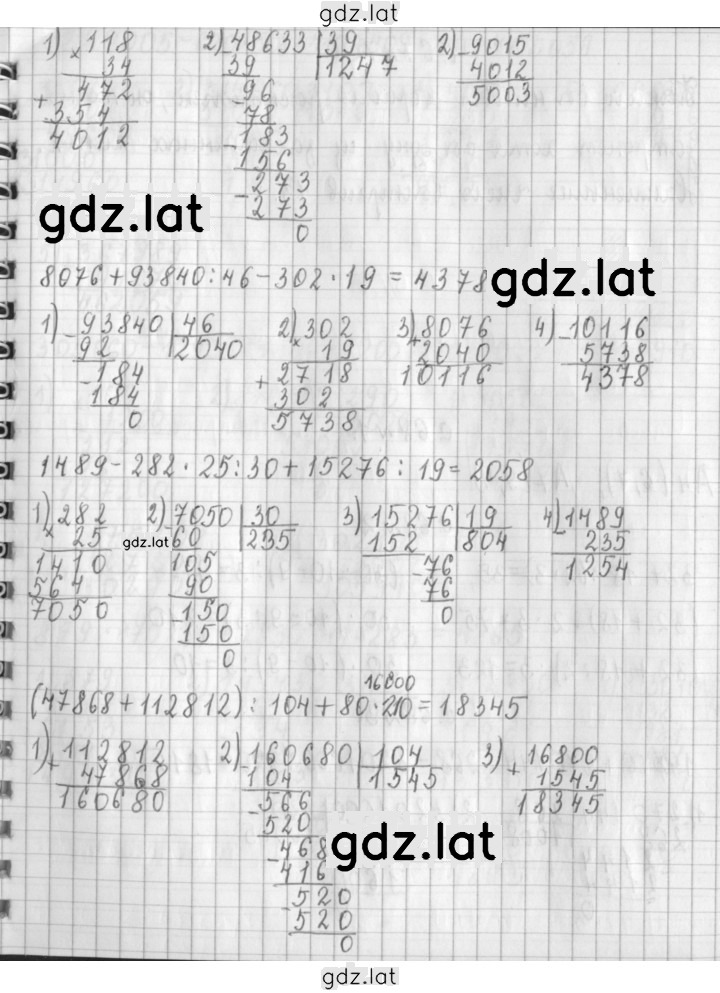 gdz.lat
1) × 118 2) - 48633 | 39 2) - 9015
34 39 1247 4012
+ 472 96 5003
354 78
4012 - 183
156
- 273
- 273
0
gdz.lat
8076 + 93840 : 46 - 302 · 19 = 4378
gdz.lat
1) - 93840 | 46 2) × 302 3) + 8076 4) - 10116
92 2040 19 2040 5738
- 184 + 2718 10116 4378
184 302
0 5738
1489 - 282 · 25 : 30 + 15276 : 19 = 2058
1) × 282 2) - 7050 | 30 3) 15276 | 19 4) - 1489
25 gdz.lat 60 235 152 804 235
1410 105 - 76 1254
564 90 76
7050 - 150 0
150
0
16800
(47868 + 112812) : 104 + 80 · 210 = 18345
1) + 112812 2) - 160680 | 104 3) + 16800
47868 104 1545 1545
160680 - 566 18345
520
- 468
416
- 520
520
0
gdz.lat
gdz.lat